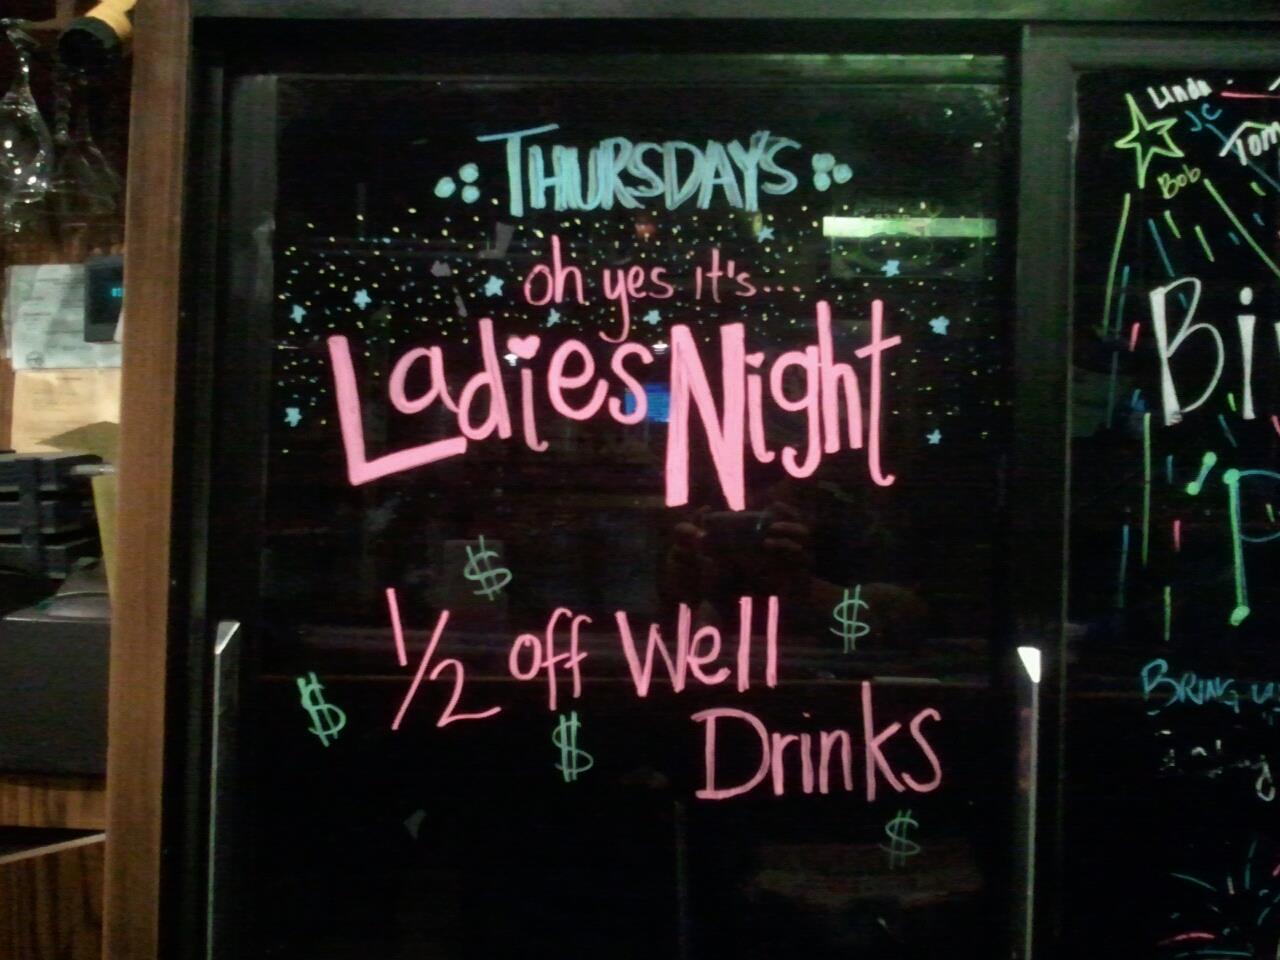 THURSDAY'S
oh yes it's...
Ladies Night
$
1/2 off Well $
$ $ Drinks
$
Linda
JC
Tom
Bob
Bi
P
BRING